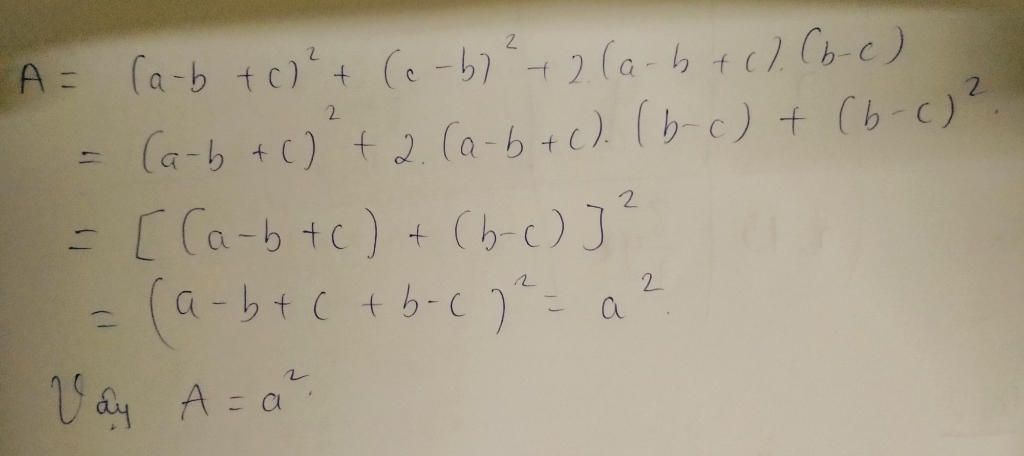 A = (a-b+c)² + (c-b)² + 2.(a-b+c).(b-c)
= (a-b+c)² + 2.(a-b+c).(b-c) + (b-c)².
= [(a-b+c) + (b-c)]²
= (a-b+c+b-c)² = a².
Vậy A = a².